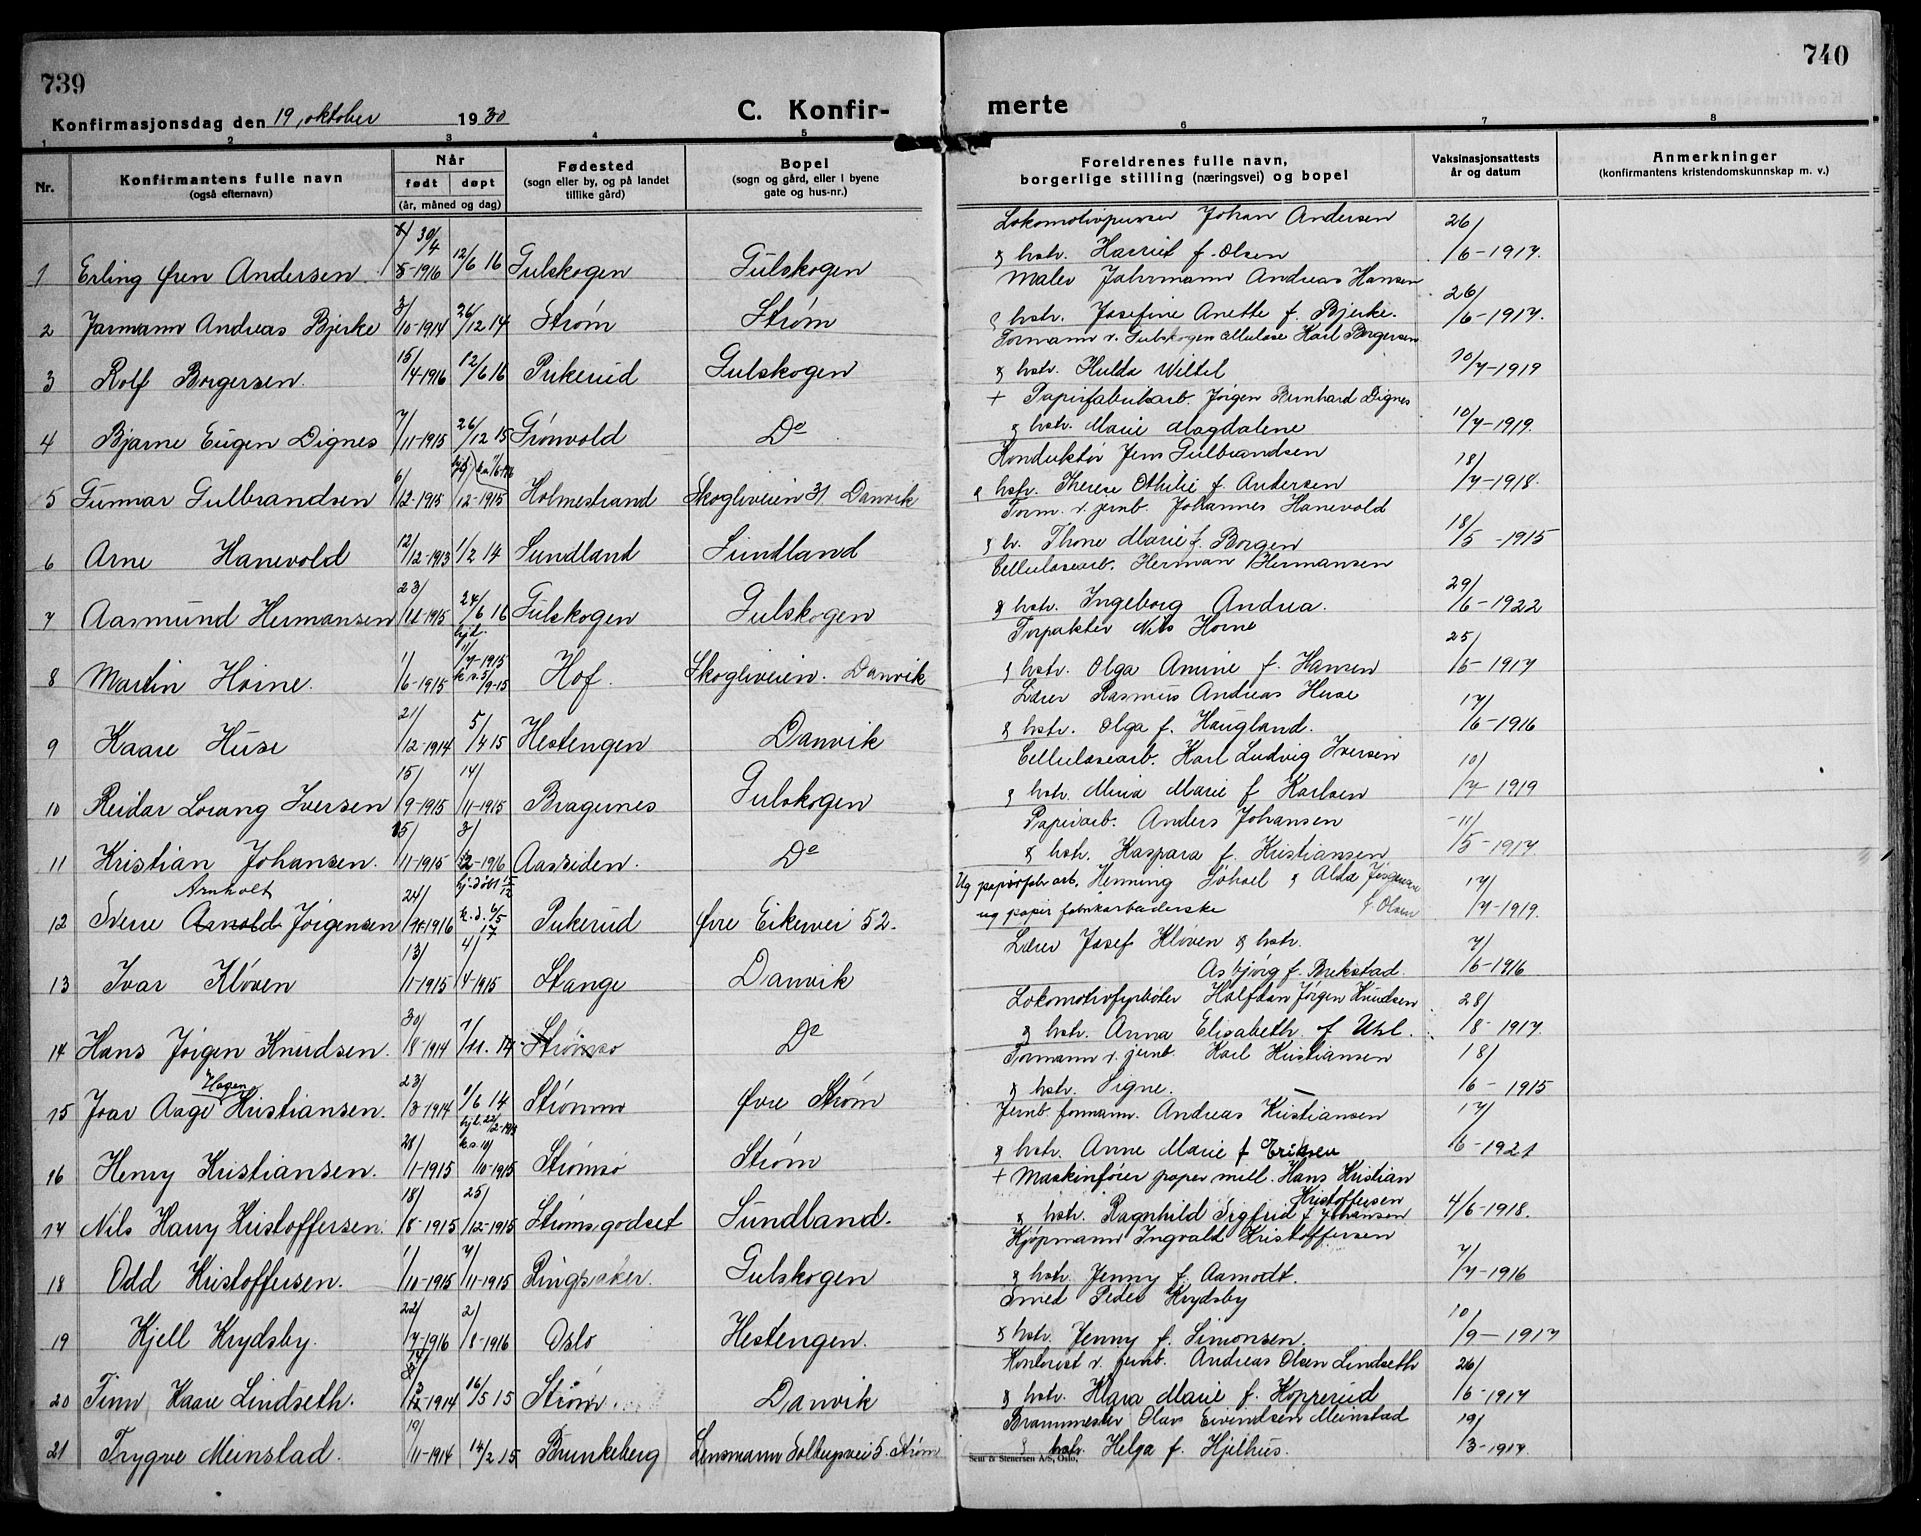 739
740
Konfirmasjonsdag den 19, oktober 1930
C. Konfir-
merte
1 2 3 4 5 6 7 8
Nr.
Konfirmantens fulle navn
(også efternavn)
Når
født døpt
(år, måned og dag)
Fødested
(sogn eller by, og på landet
tillike gård)
Bopel
(sogn og gård, eller i byene
gate og hus-nr.)
Foreldrenes fulle navn,
borgerlige stilling (næringsvei) og bopel
Vaksinasjonsattests
år og datum
Anmerkninger
(konfirmantens kristendomskunnskap m. v.)
Lokomotivpusser Johan Andersen
1 Erling Andersen 30/4 -1916 12/6 16 Gulskogen Gulskogen & hstr. Harriet f. Olsen 26/6-1917.
Maler Jahrmann Andreas Hansen
2 Jarmann Andreas Bjerke 3/10-1914 26/12 14 Strøm Strøm & hstr. Josefine Anette f. Bjerke. 26/6-1917.
Formann v. Gulskogen Cellulose Karl Borgersen
3 Rolf Borgersen. 15/4-1916 12/6 16 Pukerud Gulskogen & hstr. Hulda Wiltel 10/7-1919
+ Papirfabrikarb. Jørgen Bernhard Dignes
4 Bjarne Eugen Dignes 7/11-1915 26/12 15 Grønvold Do & hstr. Marie Magdalene 10/7-1919.
Konduktør Jens Gulbrandsen
5 Gunnar Gulbrandsen 6/12-1915 /12-1915 Holmestrand Skogliveien 31. Danvik & hstr. Therese Othilie f. Andersen 18/7-1918.
Form. v. jernb. Johannes Hanevold
6 Arne Hanevold 12/12-1913 1/2 14 Sundland Sundland & h. Thone Marie f. Borgen 18/5-1915
Cellulosearb. Herman Hermansen
7 Aasmund Hermansen 23/11-1915 24/6 16 Gulskogen Gulskogen & hstr. Ingeborg Andrea. 29/6-1922
Forpakter Nils Horne
8 Martin Horne. 1/6-1915 hjd. 11/7-1915 k. s. 5/9-15 Hof. Skogliveien. Danvik & hstr. Olga Amine f. Hansen 25/6-1917
Lærer Rasmus Andreas Huse
9 Kaare Huse 21/12-1914 5/4 15 Hestengen Danvik & hstr. Olga f. Haugland. 17/6-1916
Cellulosearb. Karl Ludvig Iversen
10 Reidar Lorang Iversen 15/9-1915 14/11-1915 Bragernes Gulskogen & hstr. Miria Marie f. Karlsen 10/7-1919
Papirarb. Anders Johansen
11 Kristian Johansen. 15/11-1915 3/2-1916 Aassiden. Do & hstr. Kaspara f. Kristiansen 11/5-1917
Ug papirfabr arb. Henning Johsel & Alda Jørgensen
Arnholt
12 Sverre Arnold Jørgensen 24/11-1916 k. d. 6/5 17 Pukerud Øvre Eikervei 52. ug papir fabrikarbeiderske f. Olsen 17/7-1919.
Lærer Josef Kløven & hstr.
13 Ivar Kløven 13/11-1915 4/4-1915 Stange Danvik Asbjørg f. Brekstad. 7/6-1916
Lokomotivfyrbøter Halfdan Jørgen Knudsen
14 Hans Jørgen Knudsen. 30/8-1914 1/11. 14 Strømsø Do & hstr. Anna Elisabeth f. Uhl. 28/8-1917.
Formann v. jernb. Karl Kristiansen
Hagen
15 Ivar Aage Kristiansen. 23/3-1914 1/6 14 Strømm Øvre Strøm & hstr. Signe. 18/6-1915
Jernb. formann. Andreas Kristiansen
16 Henry Kristiansen. 28/11-1915 /10-1915 Strømsø Strøm & hstr. Anne Marie f Eriksen 17/6-1921
+ Maskinfører paper mill. Hans Kristian
Kristoffersen
17 Nils Harry Kristoffersen. 18/8-1915 25/12-1915 Strømsgodset Sundland. & hstr. Ragnhild Sigfrid f Johansen 4/6-1918.
Kjøpmann Ingvald Kristoffersen
18 Odd Kristoffersen. 1/10-1915 7/11-1915 Ringsaker. Gulskogen & hstr. Jenny f. Aamodt. 7/7-1916
Smed Peder Krydsby
19 Kjell Krydsby. 22/7-1916 2/8-1916 Oslo Hestengen. & hstr. Jenny f. Simonsen. 10/9-1917
Kontorist v. jernb. Andreas Olsen Lindseth
20 Finn Kaare Lindseth. /12-1914 16/5 15 Strøm Danvik & hstr. Klara Marie f. Kopperud 26/6-1917
Brammester Olav Eivindsen Meinstad
21 Trygve Meinstad. 19/11-1914 14/2 15 Brunkeberg Lensmann Solbergsvei 5. Strøm & hstr. Helga f. Kjelhus. 19/3-1917.
Sem & Stenersen A/S, Oslo.